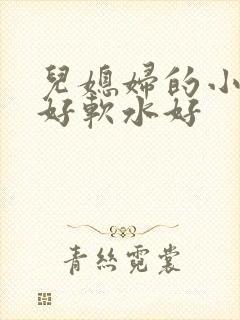 兒媳婦的小
好軟水好
青絲霓裳